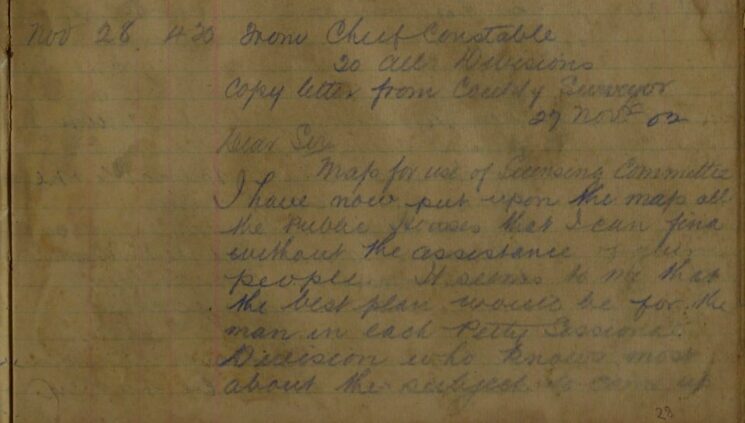 Nov 28 4 30 From Chief Constable
To all Divisions
Copy letter from County Surveyor
27 Novr 02
Dear Sir
Map for use of Licensing Committee
I have now put upon the map all
the Public Houses that I can find
without the assistance of your
people. It seems to me that
the best plan would be for the
man in each Petty Sessional
Division who knows most
about the subject to come up
28